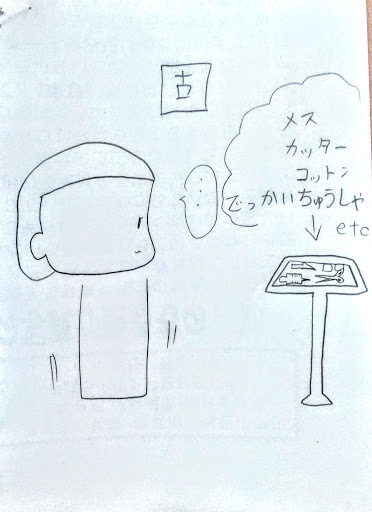 古
メス
カッター
コットン
でっかいちゅうしゃ
etc
…